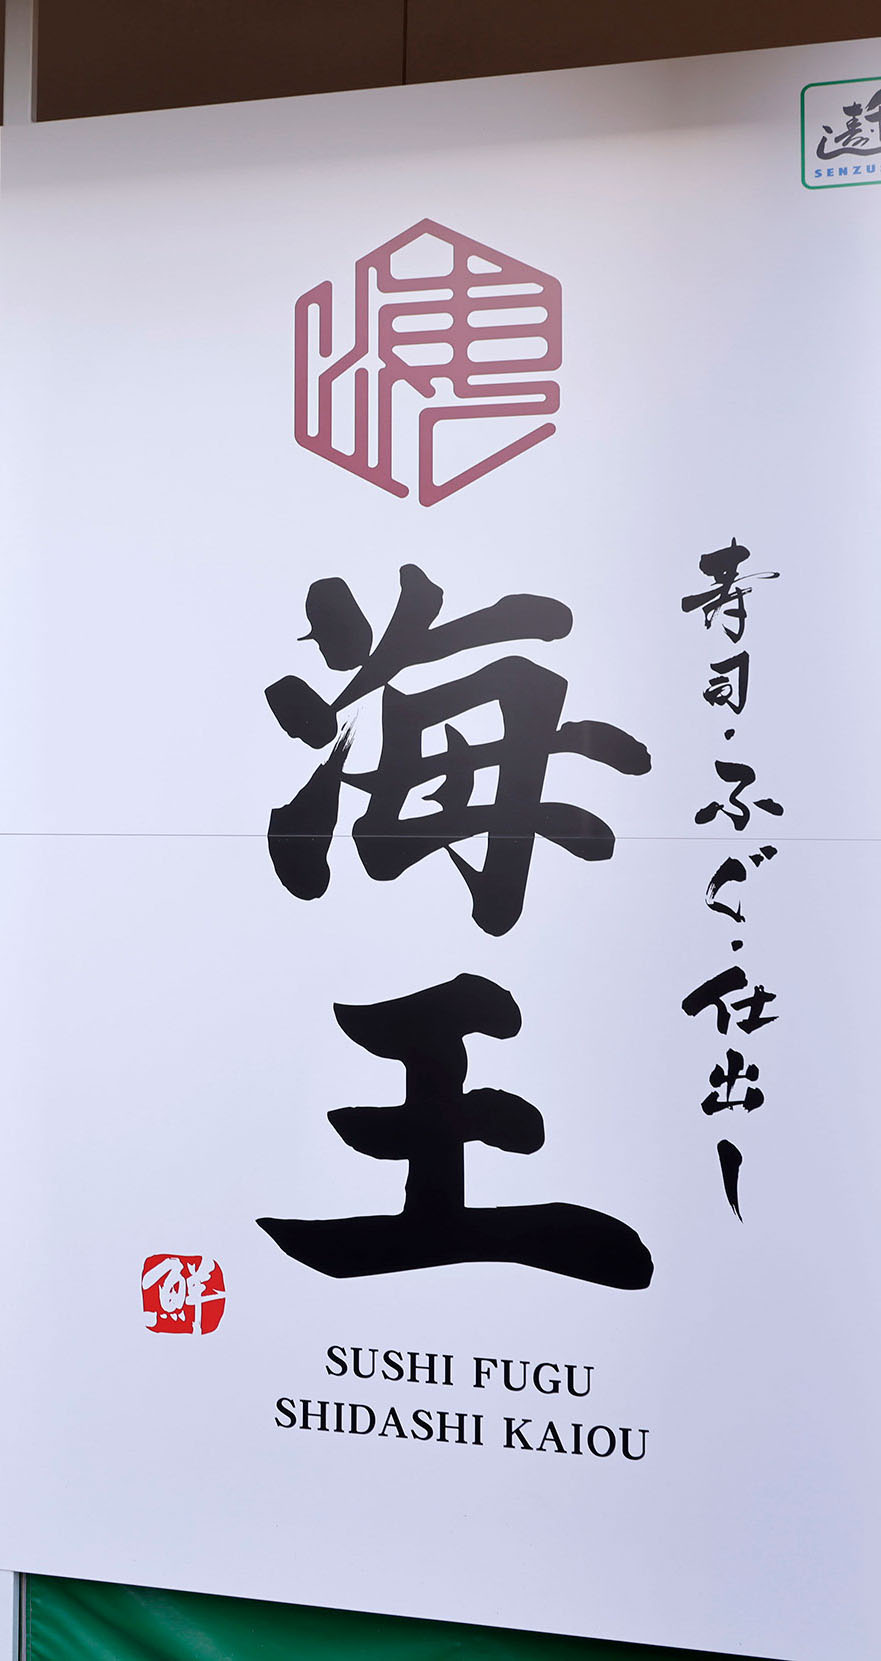 寿司・ふぐ・仕出し
海王
鮮
SUSHI FUGU
SHIDASHI KAIOU